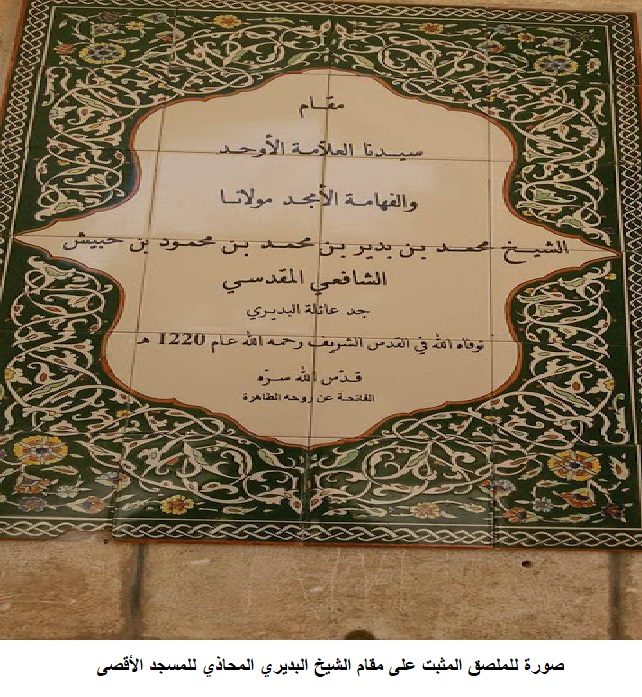 مقام
سيدنا العلامة الأوحد
والفهامة الأمجد مولانا
الشيخ محمد بن بدير بن محمد بن محمود بن حبيش
الشافعي المقدسي
جد عائلة البديري
توفاه الله في القدس الشريف رحمه الله عام 1220 هـ
قدّس الله سرّه
الفاتحة عن روحه الطاهرة
صورة للملصق المثبت على مقام الشيخ البديري المحاذي للمسجد الأقصى